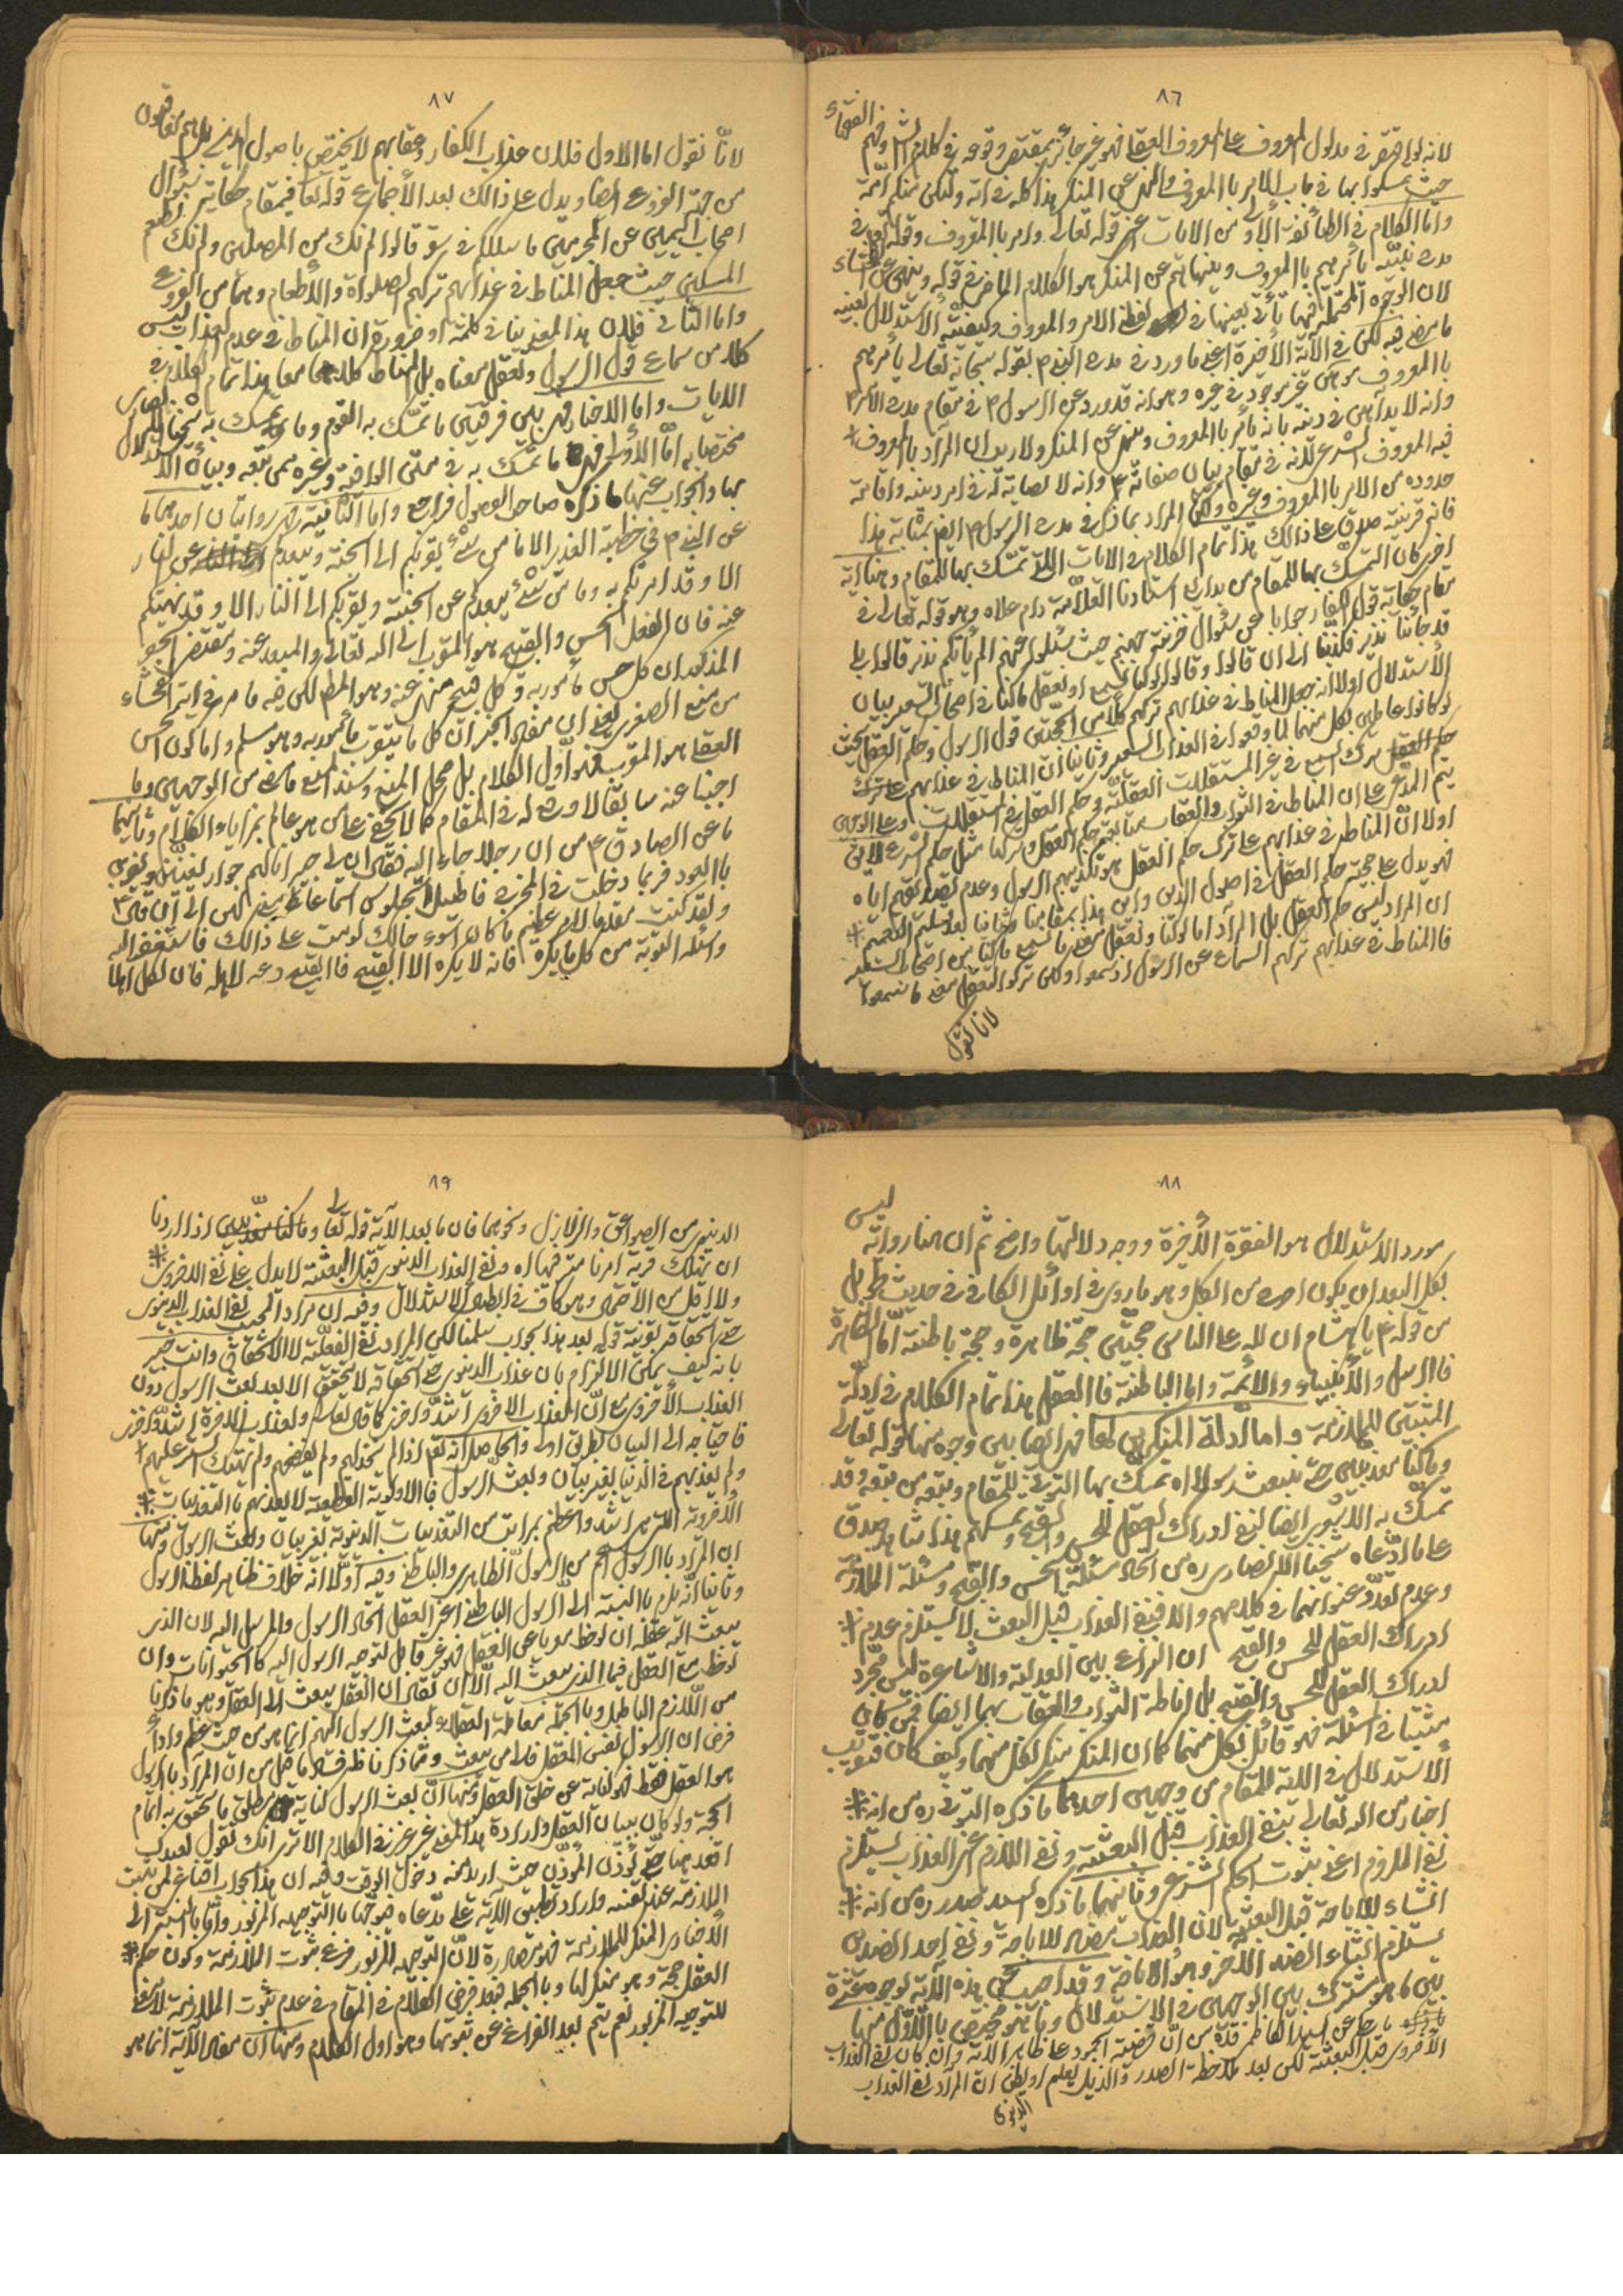 ٨٦
حيث تمسكوا بها في باب الامر بالمعروف والنهي عن المنكر هذا كله في اية ولتكن منكم امة
واما الكلام في الطائفة الأولى من الايات اعني قوله تعالى وامر بالمعروف وقوله تعالى في
مدح نبيه يأمرهم بالمعروف وينهاهم عن المنكر هو الكلام الماضي في قوله وينهى عن الفحشاء
لان الوجوه المحتملة فيها تأتي بعينها في لفظ الامر والمعروف وكيفية الأستدلال بعينه
ما مضى فيه لكن في الآية الأخيرة اعني ما ورد في مدح النبي ص بقوله سبحانه تعالى يأمرهم
بالمعروف موهن غير موجود في غيره وهو انه قد ورد عن الرسول ص في مقام مدح
وانه لا بد في دينه بانه يأمر بالمعروف وينهى عن المنكر ولا ريب ان المراد بالمعروف
فيه المعروف الشرعي لانه في مقام بيان صفاته ص وانه لا
حدوده من الامر بالمعروف وغيره ولكن المراد بما ذكر في مدح الرسول ص ايضا بمثابة هذا
فانه قرينة صدق على ذلك هذا تمام الكلام في الايات التي تمسك بها للمقام وهنا اية
اخرى كان التمسك بها للمقام من استادنا العلامة دام علاه وهو قوله تعالى في
مقام حكاية قول الكفار جوابا عن سؤال خزنة جهنم حيث سئلوا عنهم الم يأتكم نذير قالوا بلى
قد جائنا نذير فكذبنا الى ان قالوا وقالوا لو كنا نسمع او نعقل ما كنا في اصحاب السعير بيان
الأستدلال اولا انه جعل المناط في عذابهم تركهم كلا من الحجتين قول الرسول وحكم العقل بحيث
لو كانوا عاملين بكل منهما لما وقعوا في العذاب السعير وثانيا ان المناط في عذابهم
اولا ان المناط في عذابهم على ترك حكم العقل هو تكذيبهم الرسول وعدم تصديقهم اياه
فهو يدل على حجية حكم العقل في اصول الدين واين هذا بمقامنا وثانيا بعد تسليم التعميم
ان المراد ليس حكم العقل بل المراد اما لو كنا نعقل معنى ما نسمع ما كنا من اصحاب السعير
فالمناط في عذابهم تركهم السماع عن الرسول اذ سمعوا ولكن تركوا التعقل معنى ما سمعوا
لانا نقول
٨٧
لانا نقول اما الاول فلان عذاب الكفار وعقابهم لا يختص باصول الدين بل هم معاقبون
من جهة الفروع ايضا ويدل على ذالك بعد الأجماع قوله تعالى في مقام حكاية سؤال
اصحاب اليمين عن المجرمين ما سلككم في سقر قالوا لم نك من المصلين ولم نك نطعم
المسكين حيث جعل المناط في عذابهم تركهم الصلواة والأطعام وهما من الفروع
واما الثاني فلان هذا المعنى ينافي كلمة او ضرورة ان المناط في عدم العذاب ليس
كلا من سماع قول الرسول وتعقل معناه بل المناط كلاهما معا هذا تمام الكلام في
الايات واما الاخبار فهي بين فرقتين ما تمسك به القوم وما تمسك به شيخنا
مختصا به اما الأولى فهي ما تمسك به في محكي الوافية وغيره ممن تبعه وبيان الاستدلال
بها والجواب عنها ما ذكره صاحب الفصول فراجع واما الثانية فهي روايتان احديهما ما
عن النبي ص في خطبة الغدير الا ما من شئ يقربكم الى الجنة ويبعدكم عن النار
الا وقد امرتكم به وما من شئ يبعدكم عن الجنة ويقربكم الى النار الا وقد نهيتكم
عنه فان الفعل الحسن والقبيح هو المقرب الى الله تعالى والمبعد عنه ومقتضى الحصر
المذكور ان كل حسن مأمور به وكل قبيح منهي عنه وهو المط لكن فيه ما مر في اية الفحشاء
من منع الصغرى يعني ان مفاد الخبر ان كل ما يتقرب مأمور به وهو مسلم واما كون الحسن
العقلي هو المقرب فهو اول الكلام بل محل المنع وسند المنع ما مضى من الوجهين وما
اجبنا عنه سابقا لا ورود له في المقام كما لا يخفى على من هو عالم بمزايا الكلام وثانيهما
ما عن الصادق ع من ان رجلا جاء اليه فقال ان لي جيرانا لهم جوار يتغنين ويضربن
بالعود فربما دخلت المخرج فاطيل الجلوس استماعا مني لهن الى ان قال ع
ولقد كنت مقيما على امر عظيم ما كان اسوء حالك لو مت على ذالك فاستغفر الله
واسئله التوبة من كل ما يكره فانه لا يكره الا القبيح فالقبيح دعه لاهله فان لكل اهلا
٨٨
مورد الاستدلال هو الفقرة الأخيرة ووجه دلالتها واضح ثم ان هنا رواية ليس
بكل البعد ان يكون احسن من الكل وهو ما روى في اوائل الكافي في حديث طويل
من قوله ع يا هشام ان لله على الناس حجتين حجة ظاهرة وحجة باطنة اما الظاهرة
فالرسل والأنبياء والأئمة واما الباطنة فالعقل هذا تمام الكلام في ادلة
المثبتين للملازمة واما ادلة المنكرين لها فهي ايضا بين وجوه منها قوله تعالى
وما كنا معذبين حتى نبعث رسولا اه تمسك بها التوني للمقام وتبعه من تبعه وقد
تمسك به الاشعري ايضا لنفي ادراك العقل للحسن والقبح وتمسكهم هذا شاهد صدق
على ما ادعاه شيخنا الانصاري ره من اتحاد مسئلة الحسن والقبح ومسئلة الملازمة
وعدم تعدد عنوانهما في كلامهم والا فنفي العذاب قبل البعث لا يستلزم عدم
ادراك العقل للحسن والقبح ان النزاع بين العدلية والاشاعرة ليس مجرد
ادراك العقل للحسن والقبح بل اناطة الثواب والعقاب بهما ايضا فمن كان
مثبتا في مسئلة فهو قائل بكل منهما كما ان المنكر منكر لكل منهما وكيف كان فتقريب
الأستدلال في الاية للمقام من وجهين احدهما ما ذكره التوني ره من انه
اخبار من الله تعالى بنفي العذاب قبل البعثة ونفي اللازم اعني العذاب يستلزم
نفي الملزوم اعني ثبوت الحكم الشرعي وثانيهما ما ذكره السيد صدر ره من انه
انشاء للاباحة قبل البعثة لان العذاب مضاد للاباحة ونفي احد الضدين
يستلزم اثبات الضد الاخر وهو الاباحة وقد اجيب عن هذه الاية بوجوه عشرة
بين ما هو مشترك بين الوجهين في الاستدلال وما هو مختص بالأول منها
ما حكي عن السيد الكاظمي قده من ان قضية الجمود على ظاهر الاية وان كان نفي العذاب
الأخروي قبل البعثة لكن بعد ملاحظة الصدر والذيل يعلم او يظن ان المراد نفي العذاب
الدنيوي
٨٩
الدنيوي من الصواعق والزلازل ونحوهما فان ما بعد الآية قوله تعالى واذا اردنا
ان نهلك قرية امرنا مترفيها اه ونفي العذاب الدنيوي قبل البعثة لا يدل على نفي الاخروي
ولا اقل من الاحتمال وهو كاف في ابطال الاستدلال وفيه ان مراد المجيب نفي العذاب الدنيوي
حتى استحقاقه بقرينة قوله بعد هذا الجواب سلمنا لكن المراد نفي الفعلية لا الاستحقاق وانت خبير
بانه كيف يمكن الالتزام بان عذاب الدنيوي حتى استحقاقه لا يتحقق الا بعد بعث الرسول دون
العذاب الأخروي مع ان العذاب الاخروي اشد واخزى كما قال تعالى ولعذاب الاخرة اشد واخزى
فاحتياجه الى البيان بطريق اولى والحاصل انه تعالى اذا لم يخذلهم ولم يفضحهم ولم يهتك سترهم عليهم
ولم يعذبهم في الدنيا بغير بيان وبعث الرسول فبالاولوية القطعية لا يعذبهم بالتعذيبات
الأخروية التي هي اشد واعظم بمراتب من التعذيبات الدنيوية بغير بيان وبعث الرسول ومنها
ان المراد بالرسول اعم من الرسول الظاهري والباطني وفيه اولا انه خلاف ظاهر لفظ الرسول
وثانيا انه يلزم بالنسبة الى الرسول الباطني اعني العقل اتحاد الرسول والمرسل اليه لان الذي
يبعث اليه عقله ان لوحظ معريا عن العقل فهو غير قابل لتوجه الرسول اليه كالحيوانات وان
لوحظ مع العقل فيما الذي يبعث اليه الا ان يقال ان العقل يبعث الى العقل وهو ما ذكرنا
من اللازم الباطل وبالجملة مقابلة العقلاء لبعث الرسول اليهم انما هو من حيث عقلهم واذا
فرض ان الرسول نفس العقل فالى من يبعث ومما ذكرنا ظهر فساد ما قيل من ان المراد بالرسول
هو العقل فقط فهو كناية عن خلق العقل ومنها ان بعث الرسول كناية عن مطلق ما يتحقق به اتمام
الحجة ولو كان ببيان العقل وارادة هذا المعنى غير عزيز في الكلام الا ترى انك تقول لعبدك
اقعد هنا حتى يؤذن المؤذن حيث اريد منه دخول الوقت وفيه ان هذا الجواب اقناعي لمن يثبت
الملازمة عند نفسه واراد تطبيق الاية على مدعاه فيوجهها بالتوجيه المزبور واما بالنسبة الى
الأخباري المنكر للملازمة فهو مصادرة لان التوجيه المزبور فرع ثبوت الملازمة وكون حكم
العقل حجة وهو منكر لها وبالجملة فبعد فرض الكلام في المقام في عدم ثبوت الملازمة لا معنى
للتوجيه المزبور نعم يتم بعد الفراغ عن ثبوتها وهو اول الكلام ومنها ان مفاد الآية انما هو